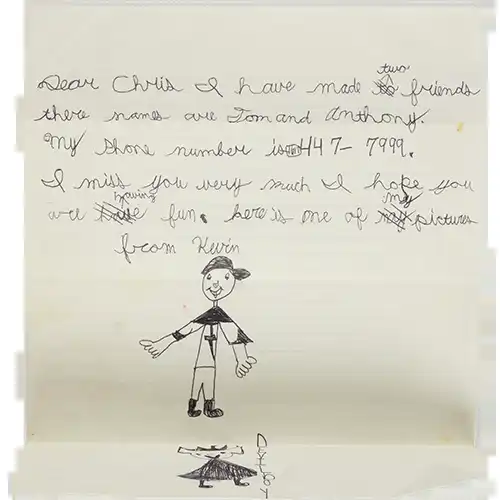 Dear Chris I have made two friends
there names are Tom and Anthony.
My phone number is 447-7999.
I miss you very much I hope you
are having fun. here is one of my pictures
from Kevin